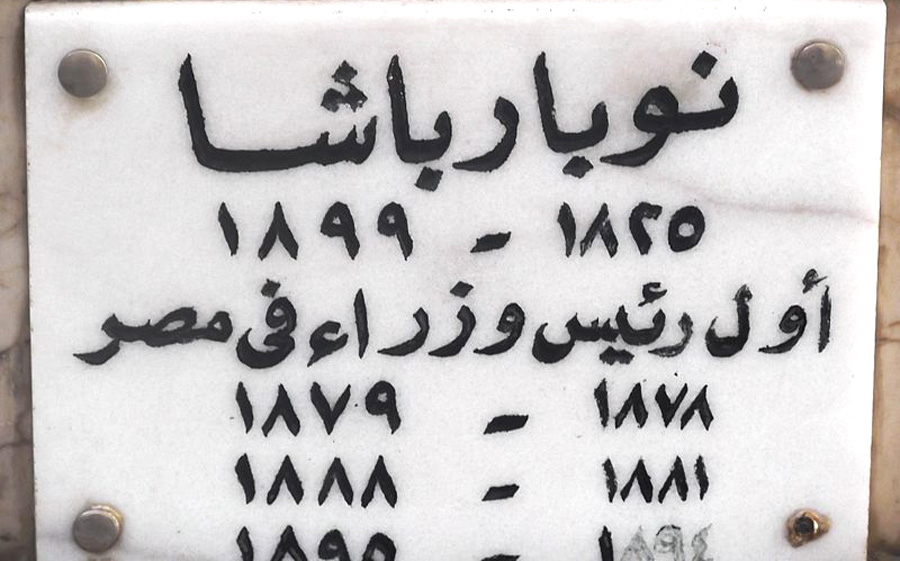 نوبار باشا
١٨٢٥ - ١٨٩٩
أول رئيس وزراء فى مصر
١٨٧٨ - ١٨٧٩
١٨٨١ - ١٨٨٨
١٨٩٤ - ١٨٩٥